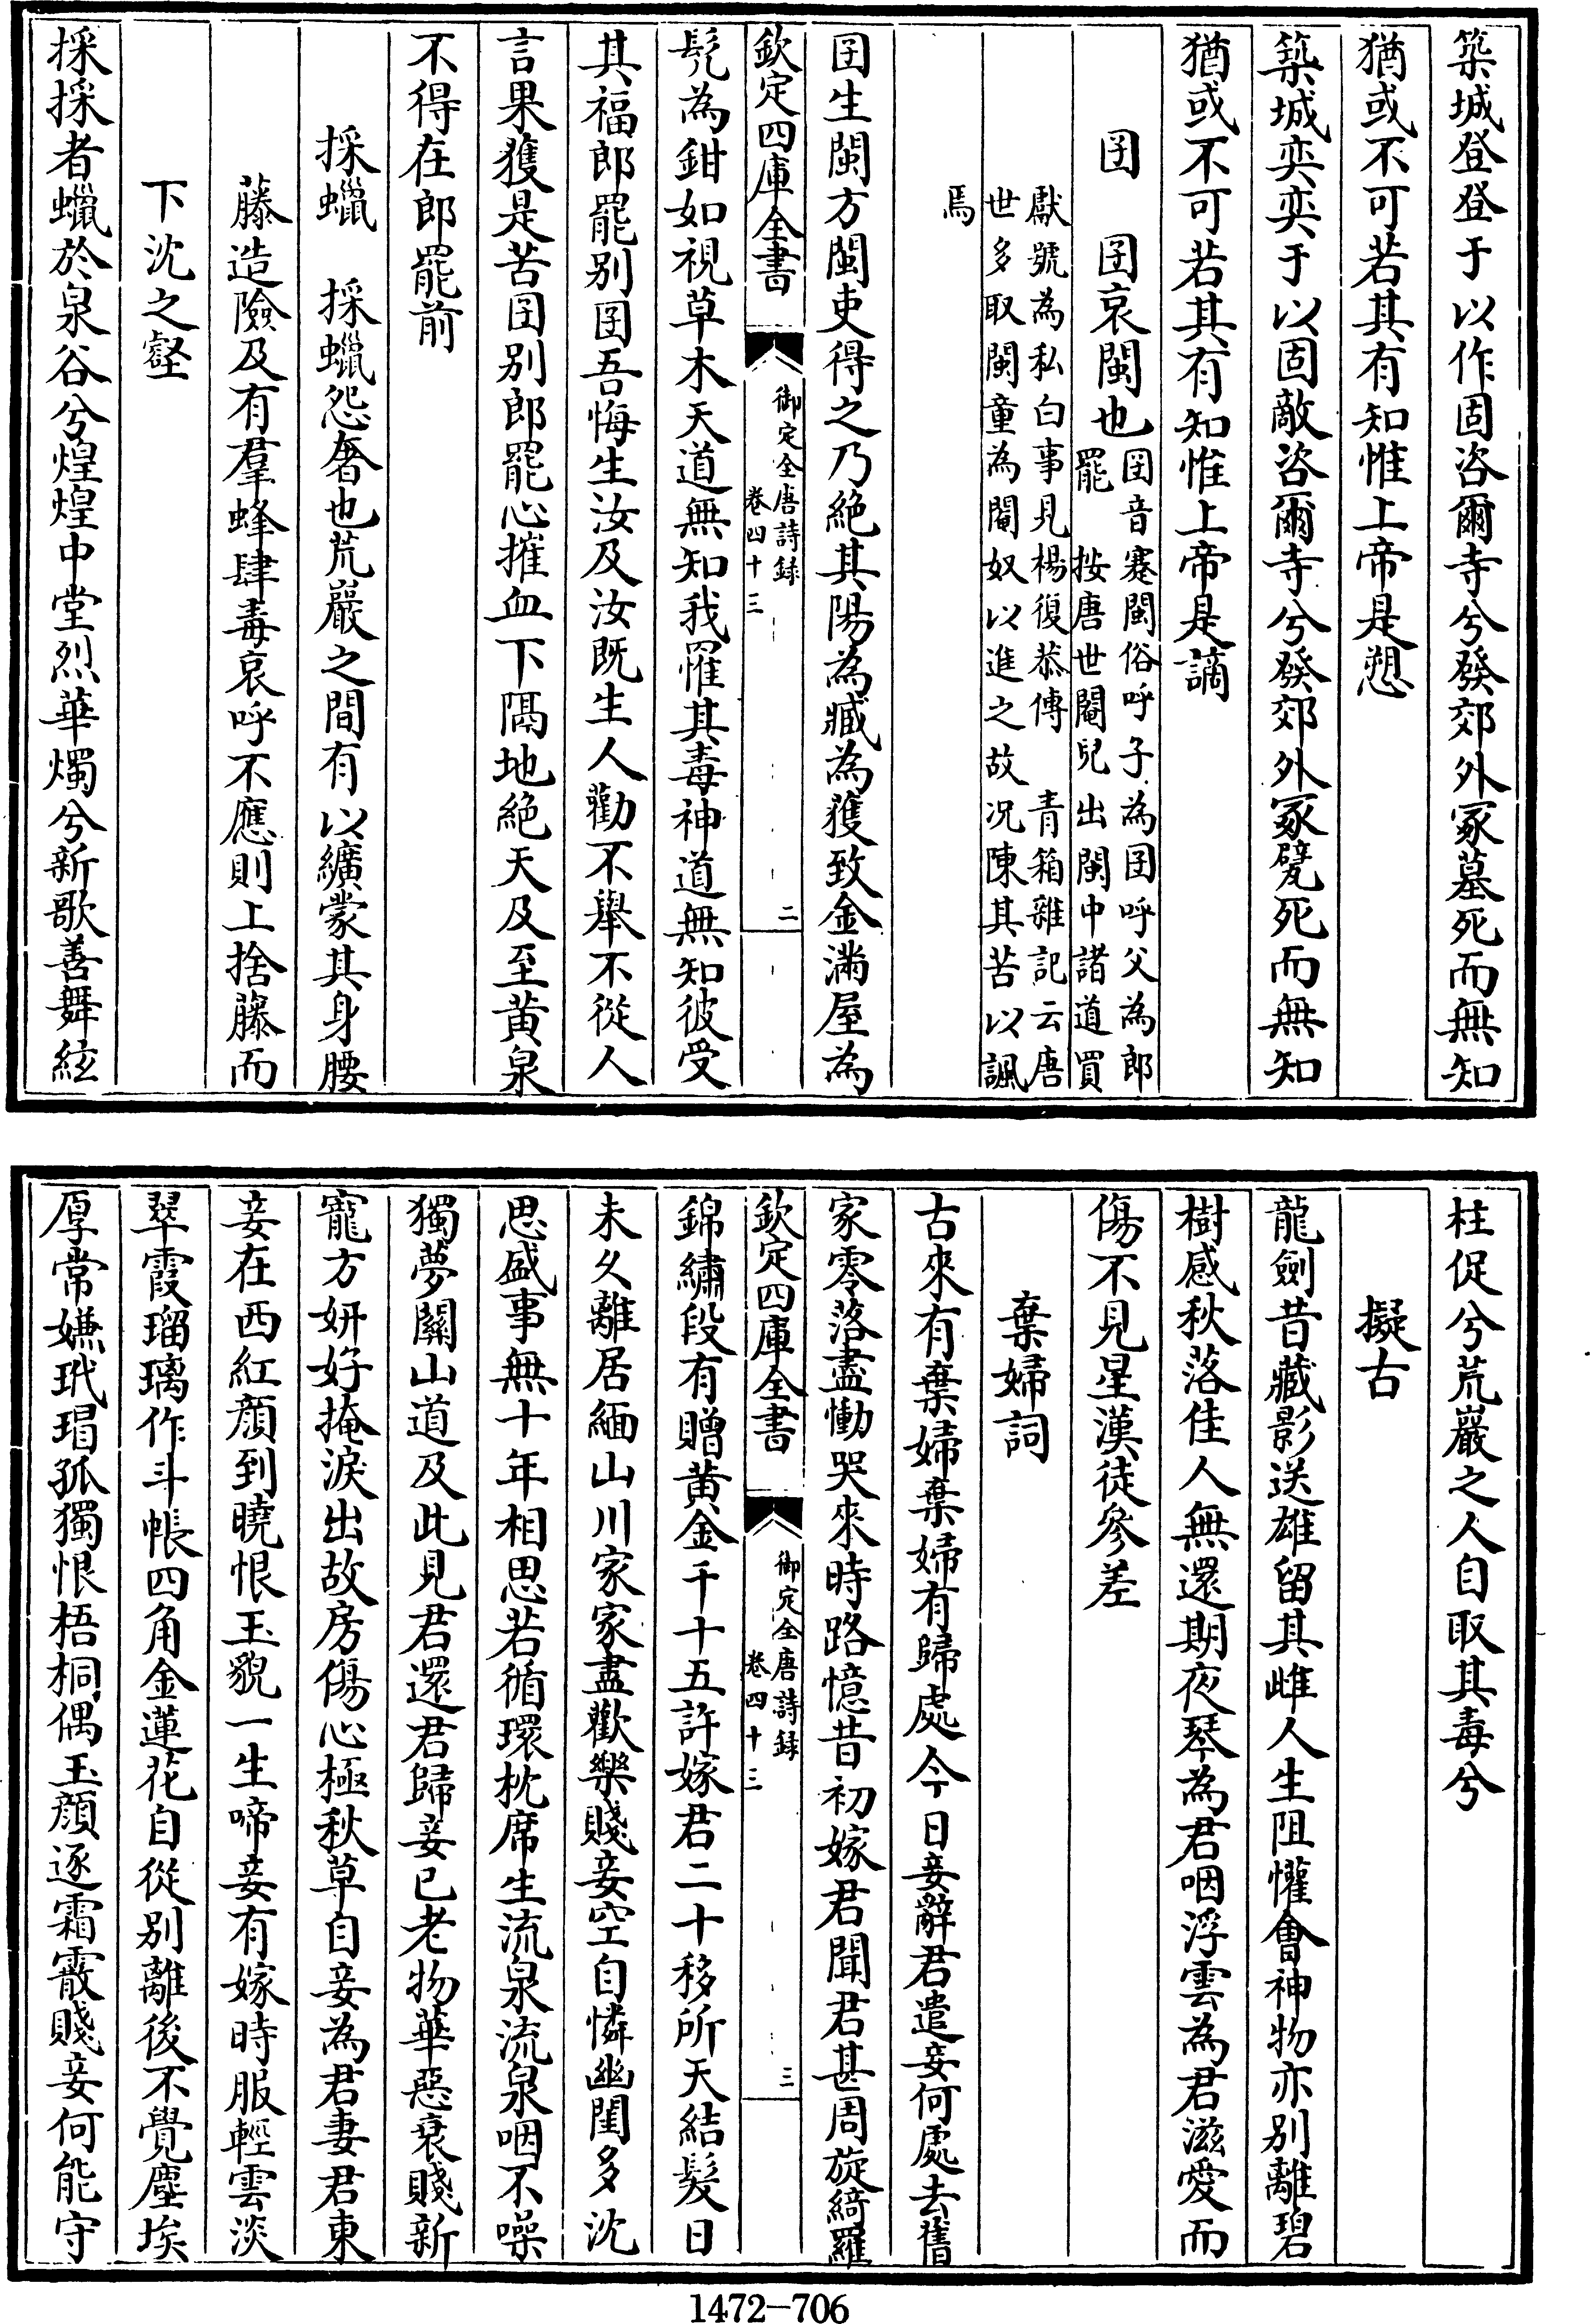 築城登登于以作固咨爾寺兮發郊外冢墓死而無知
猶或不可若其有知惟上帝是愬
築城奕奕于以固敵咨爾寺兮發郊外冢甓死而無知
猶或不可若其有知惟上帝是謫
囝　囝哀閩也
囝音蹇閩俗呼子為囝呼父為郎
罷　按唐世閹兒出閩中諸道買
獻號為私白事見楊復恭傳　青箱雜記云唐
世多取閩童為閹奴以進之故况陳其苦以諷
焉
囝生閩方閩吏得之乃絶其陽為臧為獲致金滿屋為
欽定四庫全書
御定全唐詩録
卷四十三
二
髠為鉗如視草木天道無知我罹其毒神道無知彼受
其福郎罷别囝吾悔生汝及汝既生人勸不舉不從人
言果獲是苦囝别郎罷心摧血下隔地絶天及至黄泉
不得在郎罷前
採蠟　採蠟怨奢也荒巖之間有以纊蒙其身腰
藤造險及有羣蜂肆毒哀呼不應則上捨藤而
下沈之壑
採採者蠟於泉谷兮煌煌中堂烈華燭兮新歌善舞絃
柱促兮荒巖之人自取其毒兮
擬古
龍劍昔藏影送雄留其雌人生阻懽會神物亦别離碧
樹感秋落佳人無還期夜琴為君咽浮雲為君滋愛而
傷不見星漢徒參差
棄婦詞
古來有棄婦棄婦有歸處今日妾辭君遣妾何處去舊
家零落盡慟哭來時路憶昔初嫁君聞君甚周旋綺羅
欽定四庫全書
御定全唐詩録
卷四十三
三
錦繡段有贈黄金千十五許嫁君二十移所天結髮日
未久離居緬山川家家盡歡樂賤妾空自憐幽閨多沈
思盛事無十年相思若循環枕席生流泉流泉咽不噪
獨夢關山道及此見君還君歸妾已老物華惡衰賤新
寵方妍好掩淚出故房傷心極秋草自妾為君妻君東
妾在西紅顔到曉恨玉貌一生啼妾有嫁時服輕雲淡
翠霞瑠璃作斗帳四角金蓮花自從别離後不覺塵埃
厚常嫌玳瑁孤獨恨梧桐偶玉顔逐霜霰賤妾何能守
1472-706